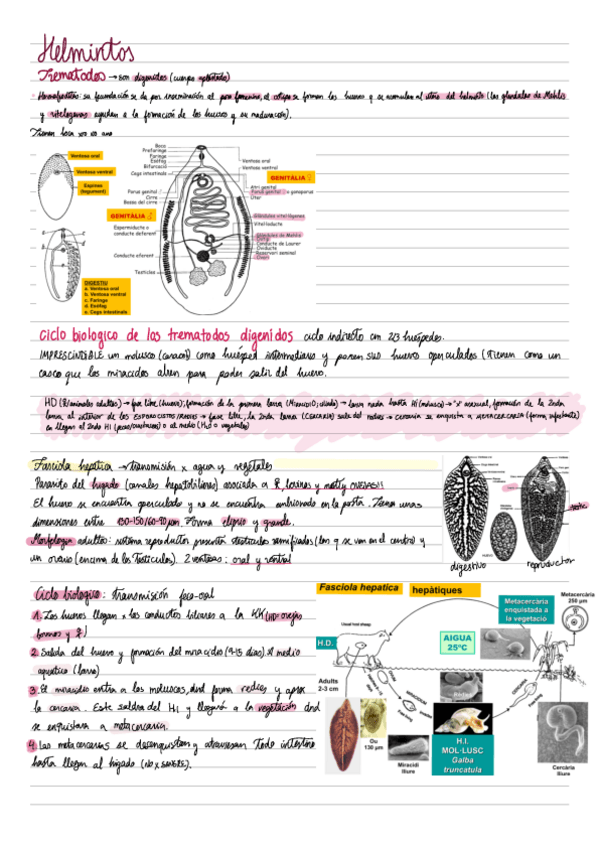 Helmintos
Trematodos → son digenidos (cuerpo aplastado)
• Hermafroditas: su fecundación se da por inseminación al poro femenino, el ootipo se forman los huevos y se acumulan al útero del helminto (las glándulas de Mehlis
y vitelógenas ayudan a la formación de los huevos y su maduración).
Tienen boca no ano
Ventosa oral
Ventosa ventral
Espines (tegument)
DIGESTIU
a. Ventosa oral
b. Ventosa ventral
c. Faringe
d. Esòfag
e. Cegs intestinals
Boca
Prefaringe
Faringe
Esòfag
Bifurcació
Cegs intestinals
Porus genital ♂
Cirre
Bossa del cirre
GENITÀLIA ♂
Espermiducte o
conducte deferent
Conducte eferent
Testicles
Ventosa oral
Ventosa ventral
GENITÀLIA ♀
Atri genital
Porus genital ♀ o gonoporus
Úter
Glàndules vitel·lògenes
Vitel·loducte
Glàndules de Mehlis
Ootip
Conducte de Laurer
Oviducte
Reservori seminal
Ovari
Ciclo biologico de los trematodos digenidos ciclo indirecto con 2/3 huéspedes.
IMPRESCINDIBLE un molusco (caracol) como huésped intermediario y ponen sus huevos operculados (tienen como un
casco que los miracidos abren para poder salir del huevo.
HD (♀/animales adultos) → fase libre (huevo); formación de la primera larva (MIRACIDIO; ciliado) → larva nada hasta HI (molusco) → "x" asexual, formación de la 2nda
larva al interior de los ESPOROCISTOS/REDIES → fase libre, la 2nda larva (CERCARIA) sale del molusco → cercaria se enquista a METACERCARIA (forma infestante)
en llegar al 2ndo HI (peces/crustáceos) o al medio (H2O o vegetales)
Fasciola hepatica → transmisión x agua y vegetales
Parasito del hígado (canales hepatobiliares) asociada a ♀, bovinos y mostly OVEJAS!!
El huevo se encuentra operculado y no se encuentra embrionado en la posta. Tienen unas
dimensiones entre 130-150/60-90 µm. Forma elíptica y grande.
Morfologia adultos: sistema reproductor presentan testiculos ramificados (los q se ven en el centro) y
un ovario (encima de los testiculos). 2 ventosas: oral y ventral
digestivo
reproductor
Ciclo biologico: transmisión feco-oral
1. Los huevos llegan x los conductos biliares a la KK (HD= ovejas
bovinos y ♀)
2. Salida del huevo y formación del miracidios (9-15 dias) al medio
aquatico (larva)
3. El miracidio entra a los moluscos, dnd forma redies y apos
la cercaria. Este saldra del HI y llegará a la vegetación dnd
se enquistara a metacercaria.
4. Las metacercarias se desenquistan y atraviesan todo intestino
hasta llegar al hígado (no x SANGRE).
Fasciola hepatica
hepàtiques
Metacercària enquistada a la vegetació
Metacercària 250 µm
Usual host sheep
H.D.
AIGUA 25ºC
Adults 2-3 cm
Ou 130 µm
Miracidi lliure
Rèdies
H.I. MOL·LUSC Galba truncatula
Cercària lliure